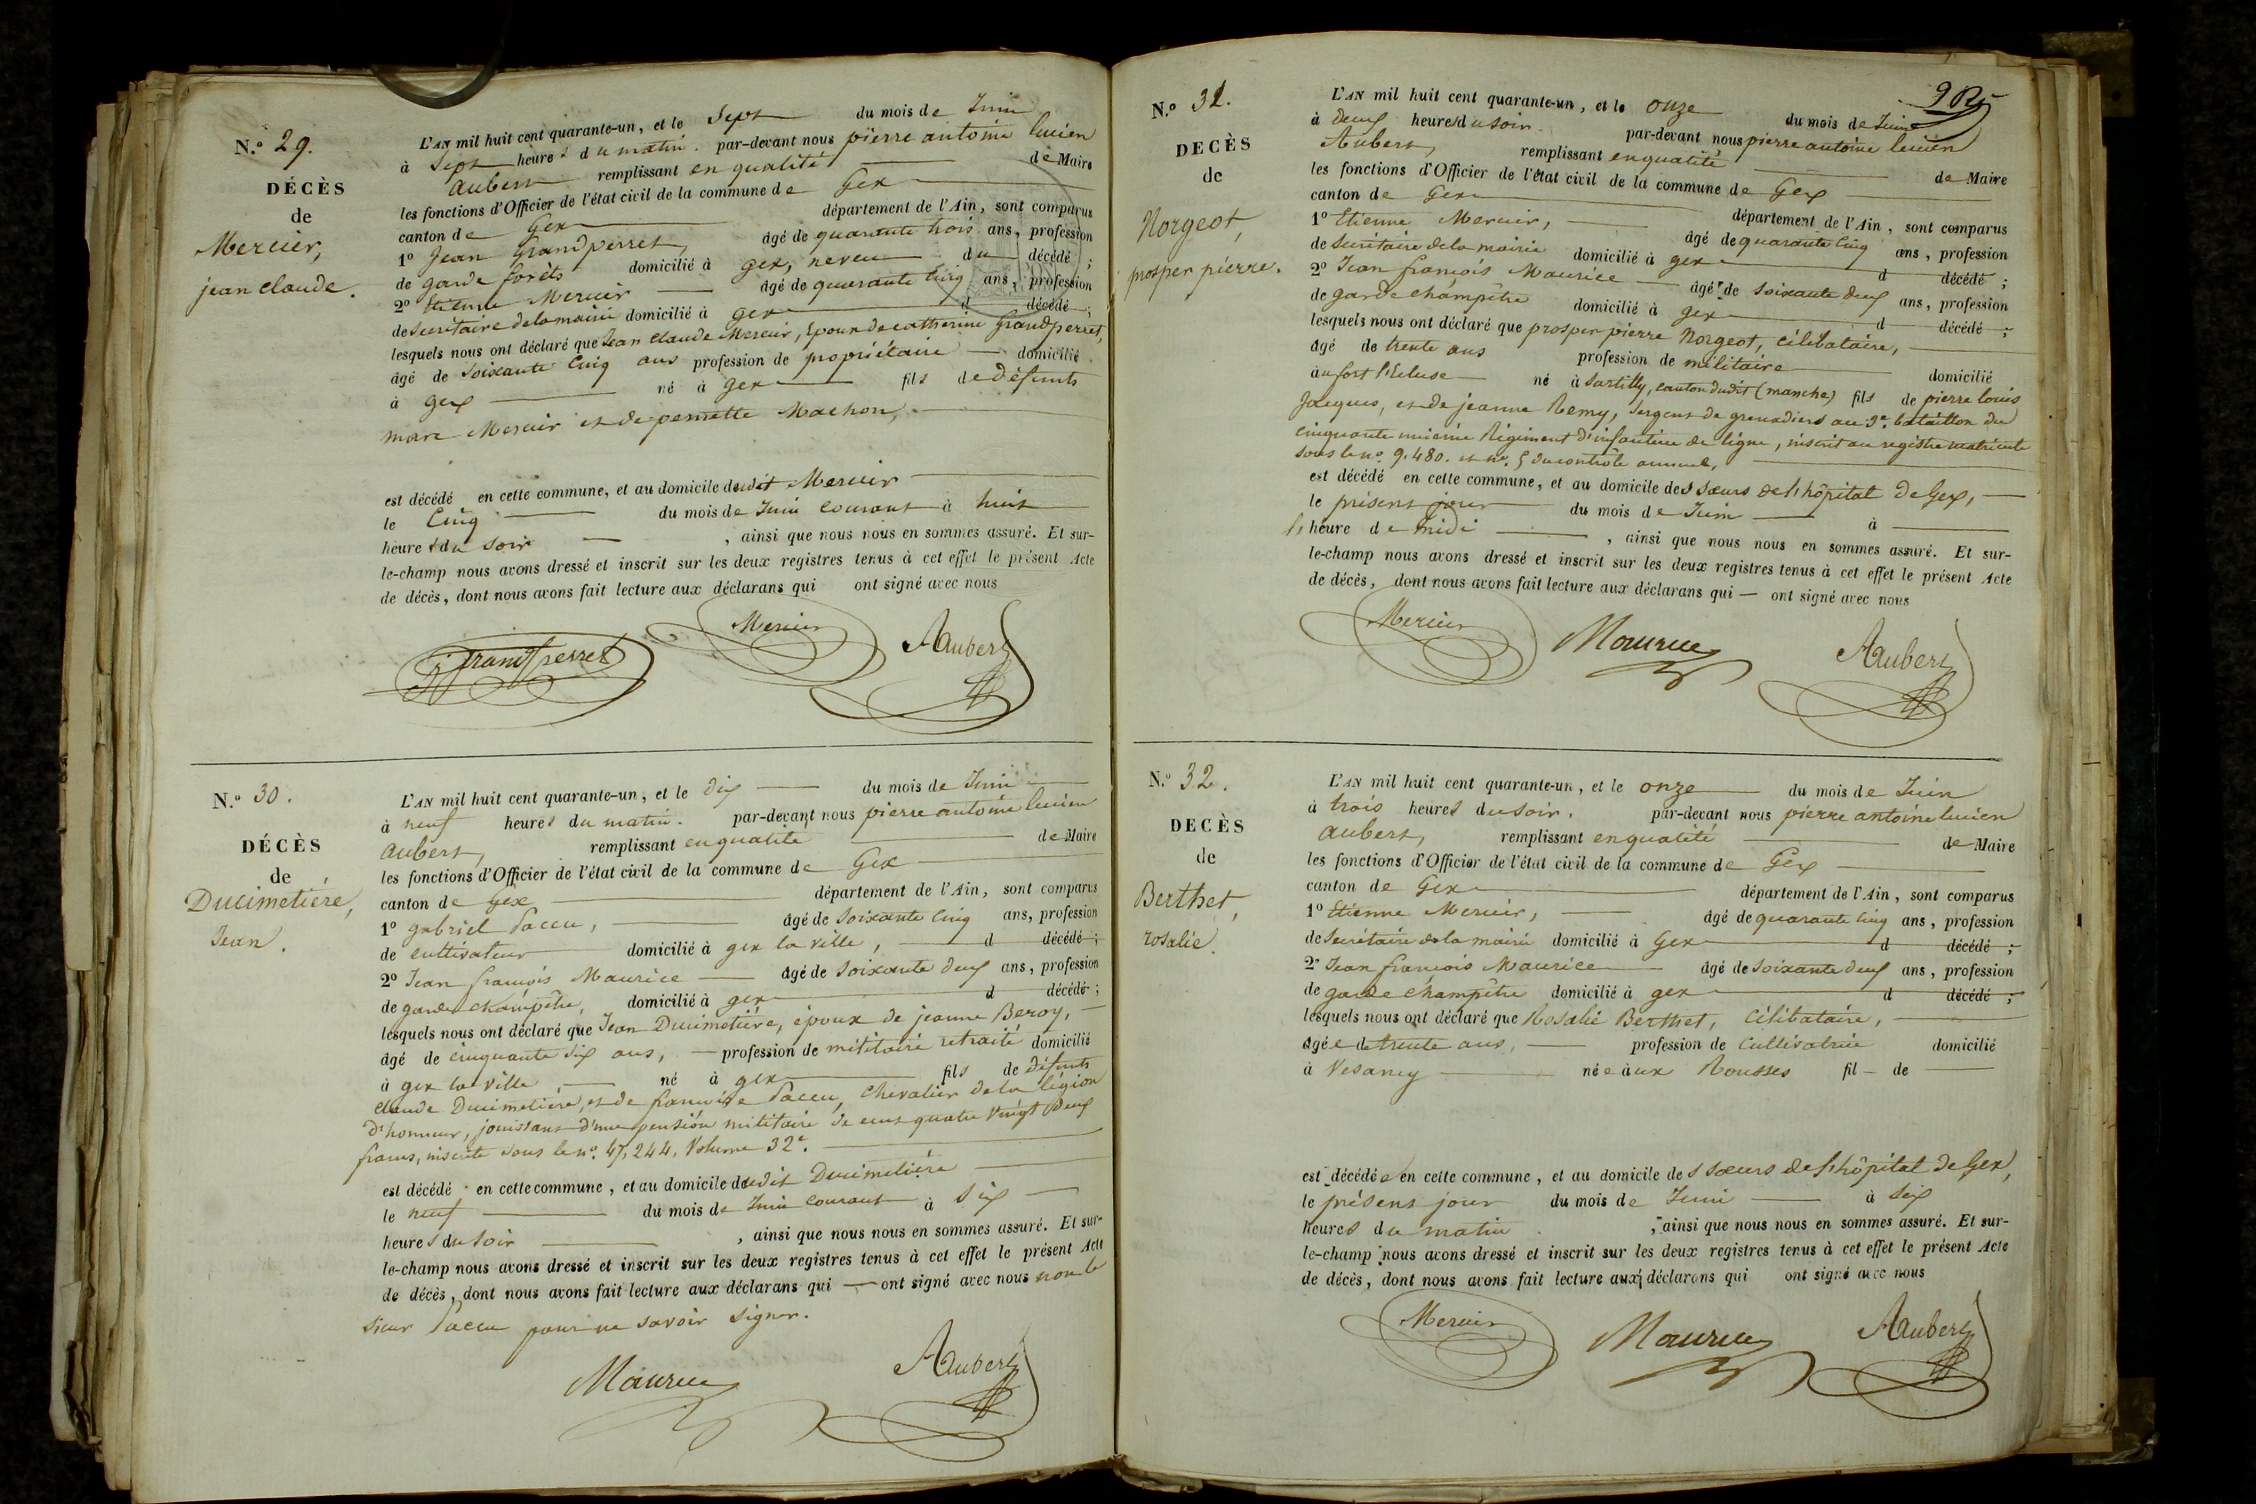 N.º 29.
DÉCÈS
de
Mercier,
jean claude.
L'AN mil huit cent quarante-un, et le Sept du mois de Juin
à Sept heures du matin. par-devant nous pierre antoine lucien
Aubert remplissant en qualité de Maire
les fonctions d'Officier de l'état civil de la commune de Gex
canton de Gex département de l'Ain, sont comparus
1º Jean Grandperret, âgé de quarante trois ans, profession
de garde forêts domicilié à gex, neveu du décédé ;
2º Etienne Mercier âgé de quarante cinq ans, profession
de Secrétaire de la mairie domicilié à gex d décédé ;
lesquels nous ont déclaré que Jean Claude Mercier, Epoux de catherine Grandperret,
âgé de soixante cinq ans profession de propriétaire domicilié
à gex né à gex fils de défunts
marc Mercier et de pernette Machon,
est décédé en cette commune, et au domicile dudit Mercier
le Cinq du mois de Juin courant à huit
heures du soir , ainsi que nous nous en sommes assuré. Et sur-
le-champ nous avons dressé et inscrit sur les deux registres tenus à cet effet le présent Acte
de décès, dont nous avons fait lecture aux déclarans qui ont signé avec nous
Grandperret Mercier Aubert
N.º 30.
DÉCÈS
de
Ducimetière,
Jean.
L'AN mil huit cent quarante-un, et le dix du mois de Juin
à neuf heures du matin. par-devant nous pierre antoine lucien
Aubert, remplissant en qualité de Maire
les fonctions d'Officier de l'état civil de la commune de Gex
canton de Gex département de l'Ain, sont comparus
1º gabriel Paccu, âgé de Soixante Cinq ans, profession
de cultivateur domicilié à gex la ville, d décédé ;
2º Jean françois Maurice âgé de Soixante deux ans, profession
de garde champêtre, domicilié à gex d décédé ;
lesquels nous ont déclaré que Jean Ducimetière, époux de jeanne Beroy,
âgé de cinquante six ans, profession de militaire retraité domicilié
à gex la ville né à gex fils de défunts
claude Ducimetière, et de françoise Paccu, Chevalier de la légion
d'honneur, jouissant d'une pension militaire de cent quatre vingt deux
francs, inscrite sous le nº. 47,244, Volume 32e.
est décédé en cette commune, et au domicile dudit Ducimetière
le neuf du mois de Juin courant à Six
heures du soir , ainsi que nous nous en sommes assuré. Et sur-
le-champ nous avons dressé et inscrit sur les deux registres tenus à cet effet le présent Acte
de décès, dont nous avons fait lecture aux déclarans qui ont signé avec nous non le
sieur Paccu pour ne savoir signer.
Maurice Aubert
N.º 31.
DÉCÈS
de
Norgeot,
prosper pierre.
L'AN mil huit cent quarante-un, et le onze du mois de Juin
à deux heures du soir. par-devant nous pierre antoine lucien
Aubert, remplissant en qualité de Maire
les fonctions d'Officier de l'état civil de la commune de Gex
canton de Gex département de l'Ain, sont comparus
1º Etienne Mercier, âgé de quarante Cinq ans, profession
de Secrétaire de la mairie domicilié à gex d décédé ;
2º Jean françois Maurice âgé de soixante deux ans, profession
de garde champêtre domicilié à gex d décédé ;
lesquels nous ont déclaré que prosper pierre Norgeot, célibataire,
âgé de trente ans profession de militaire domicilié
au fort l'Ecluse né à Sartilly, canton dudit (manche) fils de pierre louis
Jacques, et de jeanne Remy, Sergent de grenadiers au 3e. bataillon du
cinquante unième Régiment d'infanterie de ligne, inscrit au registre matricule
sous le nº. 9.480. et nº. 5 du contrôle annuel,
est décédé en cette commune, et au domicile des sœurs de l'hôpital de Gex,
le présent jour du mois de Juin à
l' heure de midi , ainsi que nous nous en sommes assuré. Et sur-
le-champ nous avons dressé et inscrit sur les deux registres tenus à cet effet le présent Acte
de décès, dont nous avons fait lecture aux déclarans qui ont signé avec nous
Mercier Maurice Aubert
N.º 32.
DECÈS
de
Berthet,
rosalie.
L'AN mil huit cent quarante-un, et le onze du mois de Juin
à trois heures du soir. par-devant nous pierre antoine lucien
Aubert, remplissant en qualité de Maire
les fonctions d'Officier de l'état civil de la commune de Gex
canton de Gex département de l'Ain, sont comparus
1º Etienne Mercier, âgé de quarante cinq ans, profession
de Secrétaire de la mairie domicilié à Gex d décédé ;
2º Jean françois Maurice âgé de soixante deux ans, profession
de garde champêtre domicilié à gex d décédé ;
lesquels nous ont déclaré que Rosalie Berthet, célibataire,
âgée de trente ans, profession de Cultivatrice domicilié
à Vesancy née aux Rousses fil de
est décédée en cette commune, et au domicile des sœurs de l'hôpital de Gex,
le présent jour du mois de Juin à Six
heures du matin , ainsi que nous nous en sommes assuré. Et sur-
le-champ nous avons dressé et inscrit sur les deux registres tenus à cet effet le présent Acte
de décès, dont nous avons fait lecture aux déclarans qui ont signé avec nous
Mercier Maurice Aubert